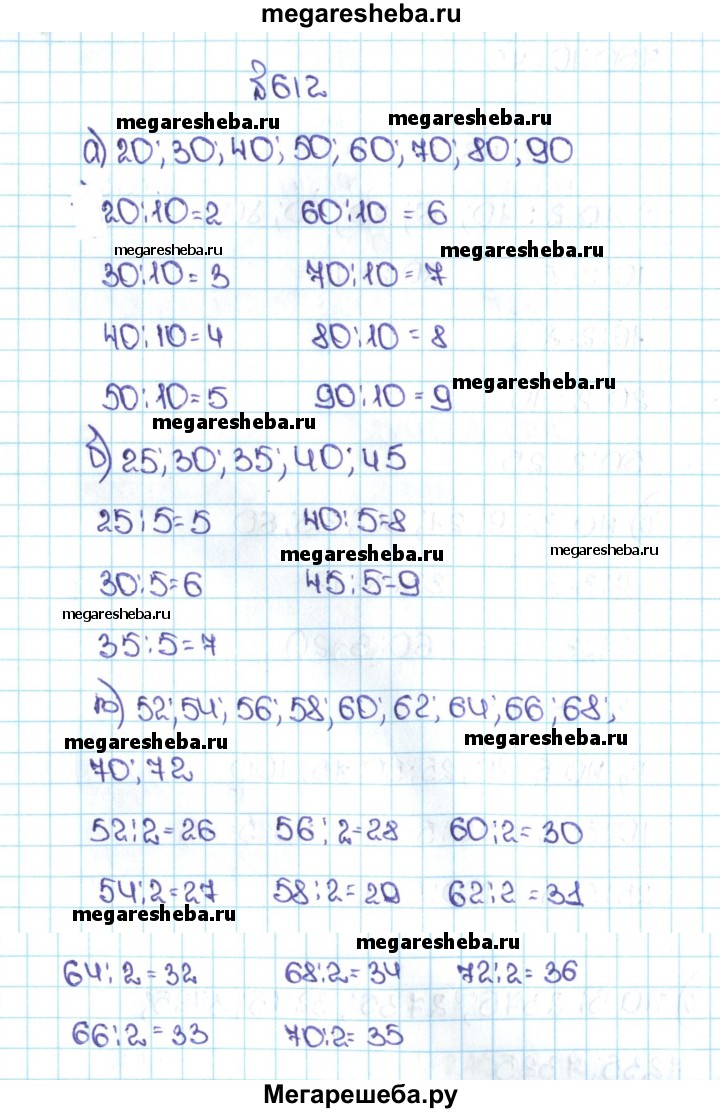 megaresheba.ru
№612
megaresheba.ru megaresheba.ru
а) 20; 30; 40; 50; 60; 70; 80; 90
20:10=2 60:10 = 6
megaresheba.ru megaresheba.ru
30:10= 3 70:10= 7
40:10=4 80:10 = 8
50:10=5 90:10 = 9 megaresheba.ru
megaresheba.ru
б) 25; 30; 35; 40; 45
25:5=5 40:5=8
megaresheba.ru megaresheba.ru
30:5=6 45:5=9
megaresheba.ru
35:5=7
в) 52; 54; 56; 58; 60; 62; 64; 66; 68;
megaresheba.ru megaresheba.ru
70; 72
52:2=26 56:2=28 60:2= 30
54:2=27 58:2=29 62:2 = 31
megaresheba.ru
megaresheba.ru
64:2=32 68:2= 34 72:2= 36
66:2= 33 70:2= 35
Мегарешеба.ру